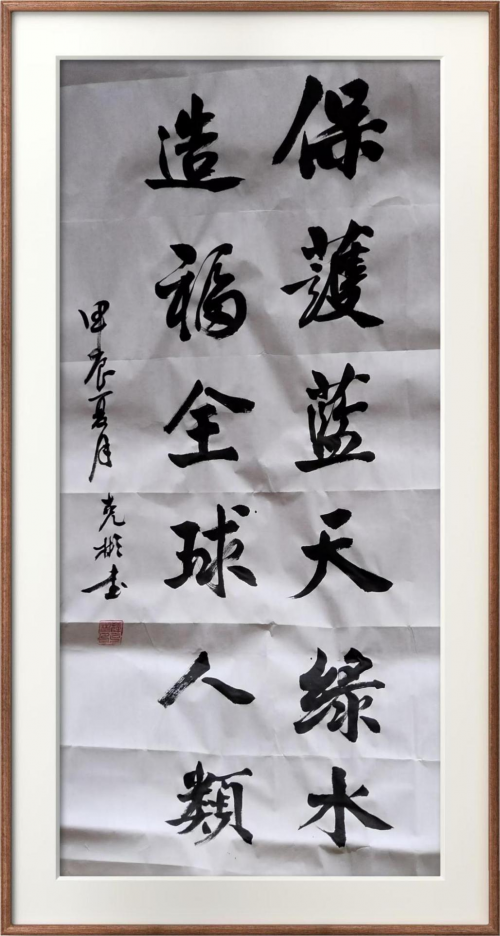 保護蓝天緑水
造福全球人類
甲辰夏月 克彬书